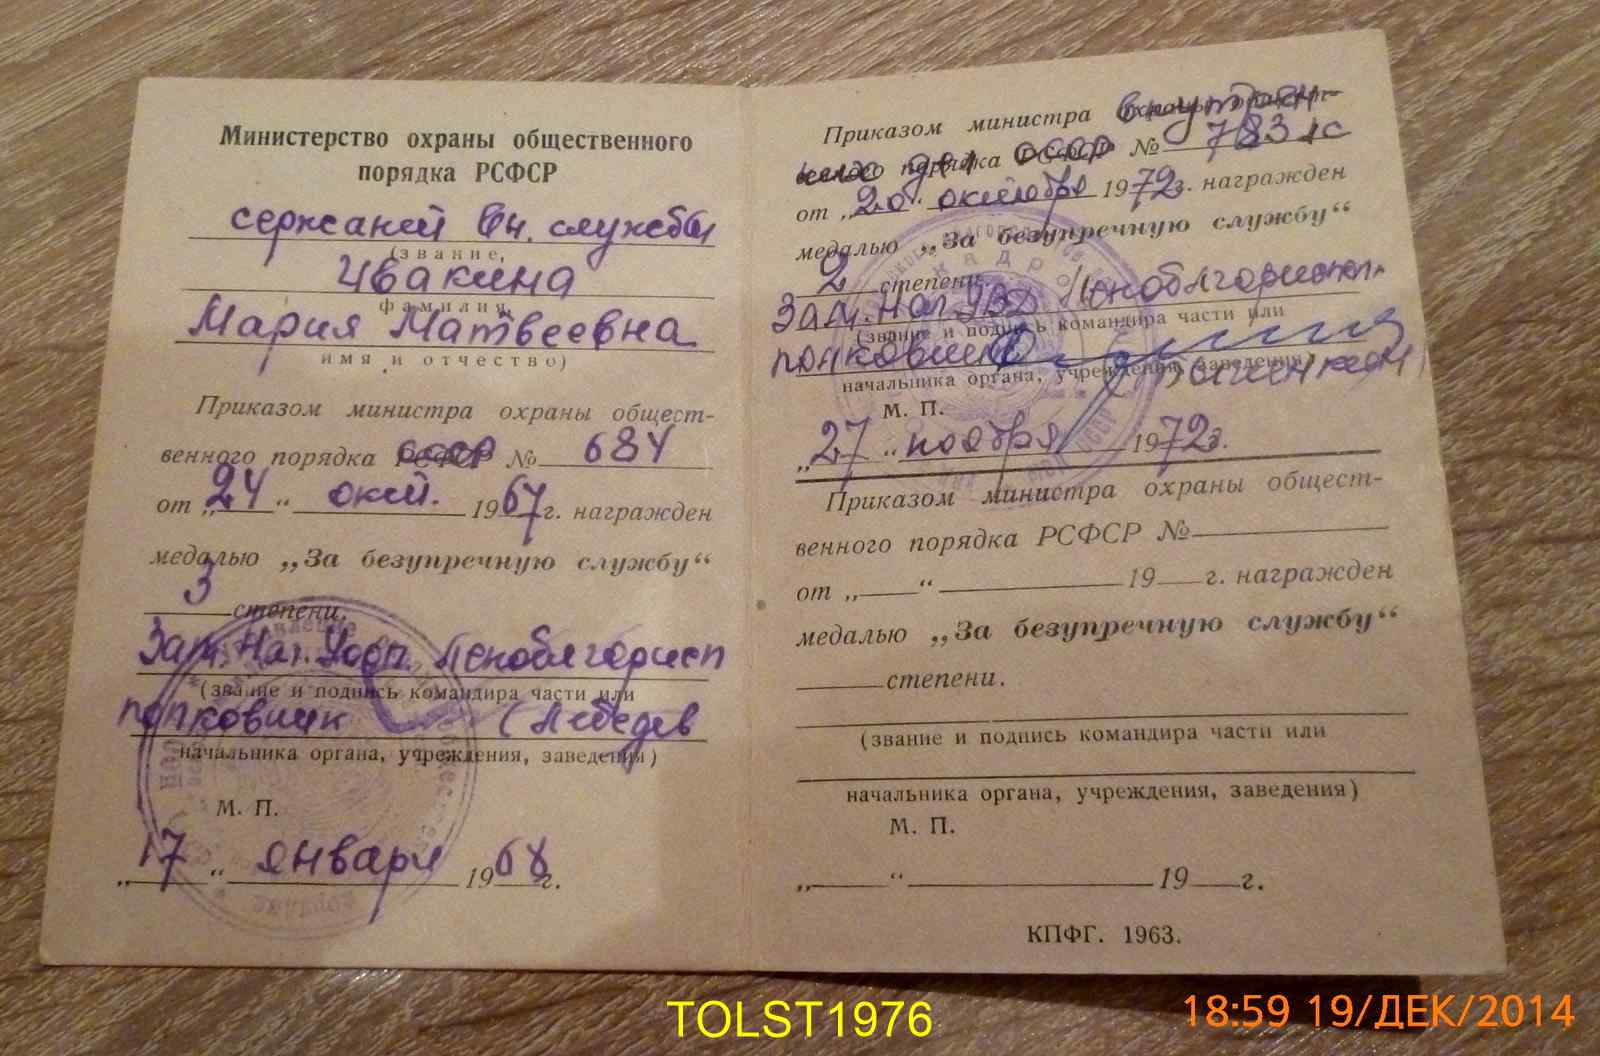 Министерство охраны общественного
порядка РСФСР
сержант вн. службы
(звание,
Ивакина
фамилия,
Мария Матвеевна
имя и отчество)
Приказом министра охраны общест-
венного порядка СССР № 684
от „24“ окт. 1967 г. награжден
медалью „За безупречную службу“
3 степени.
Зам. Нач. Уооп Леноблгорисп
(звание и подпись командира части или
полковник (Лебедев
начальника органа, учреждения, заведения)
М. П.
„17“ января 1968 г.
Приказом министра внутрен-
них дел СССР № 783 лс
от „20“ октября 1972 г. награжден
медалью „За безупречную службу“
2 степени.
Зам. Нач. УВД Леноблгорисполк.
(звание и подпись командира части или
полковник
начальника органа, учреждения, заведения)
М. П.
„27“ ноября 1972 г.
Приказом министра охраны общест-
венного порядка РСФСР №
от „ “ 19 г. награжден
медалью „За безупречную службу“
степени.
(звание и подпись командира части или
начальника органа, учреждения, заведения)
М. П.
„ “ 19 г.
КПФГ. 1963.
TOLST1976
18:59 19/ДЕК/2014